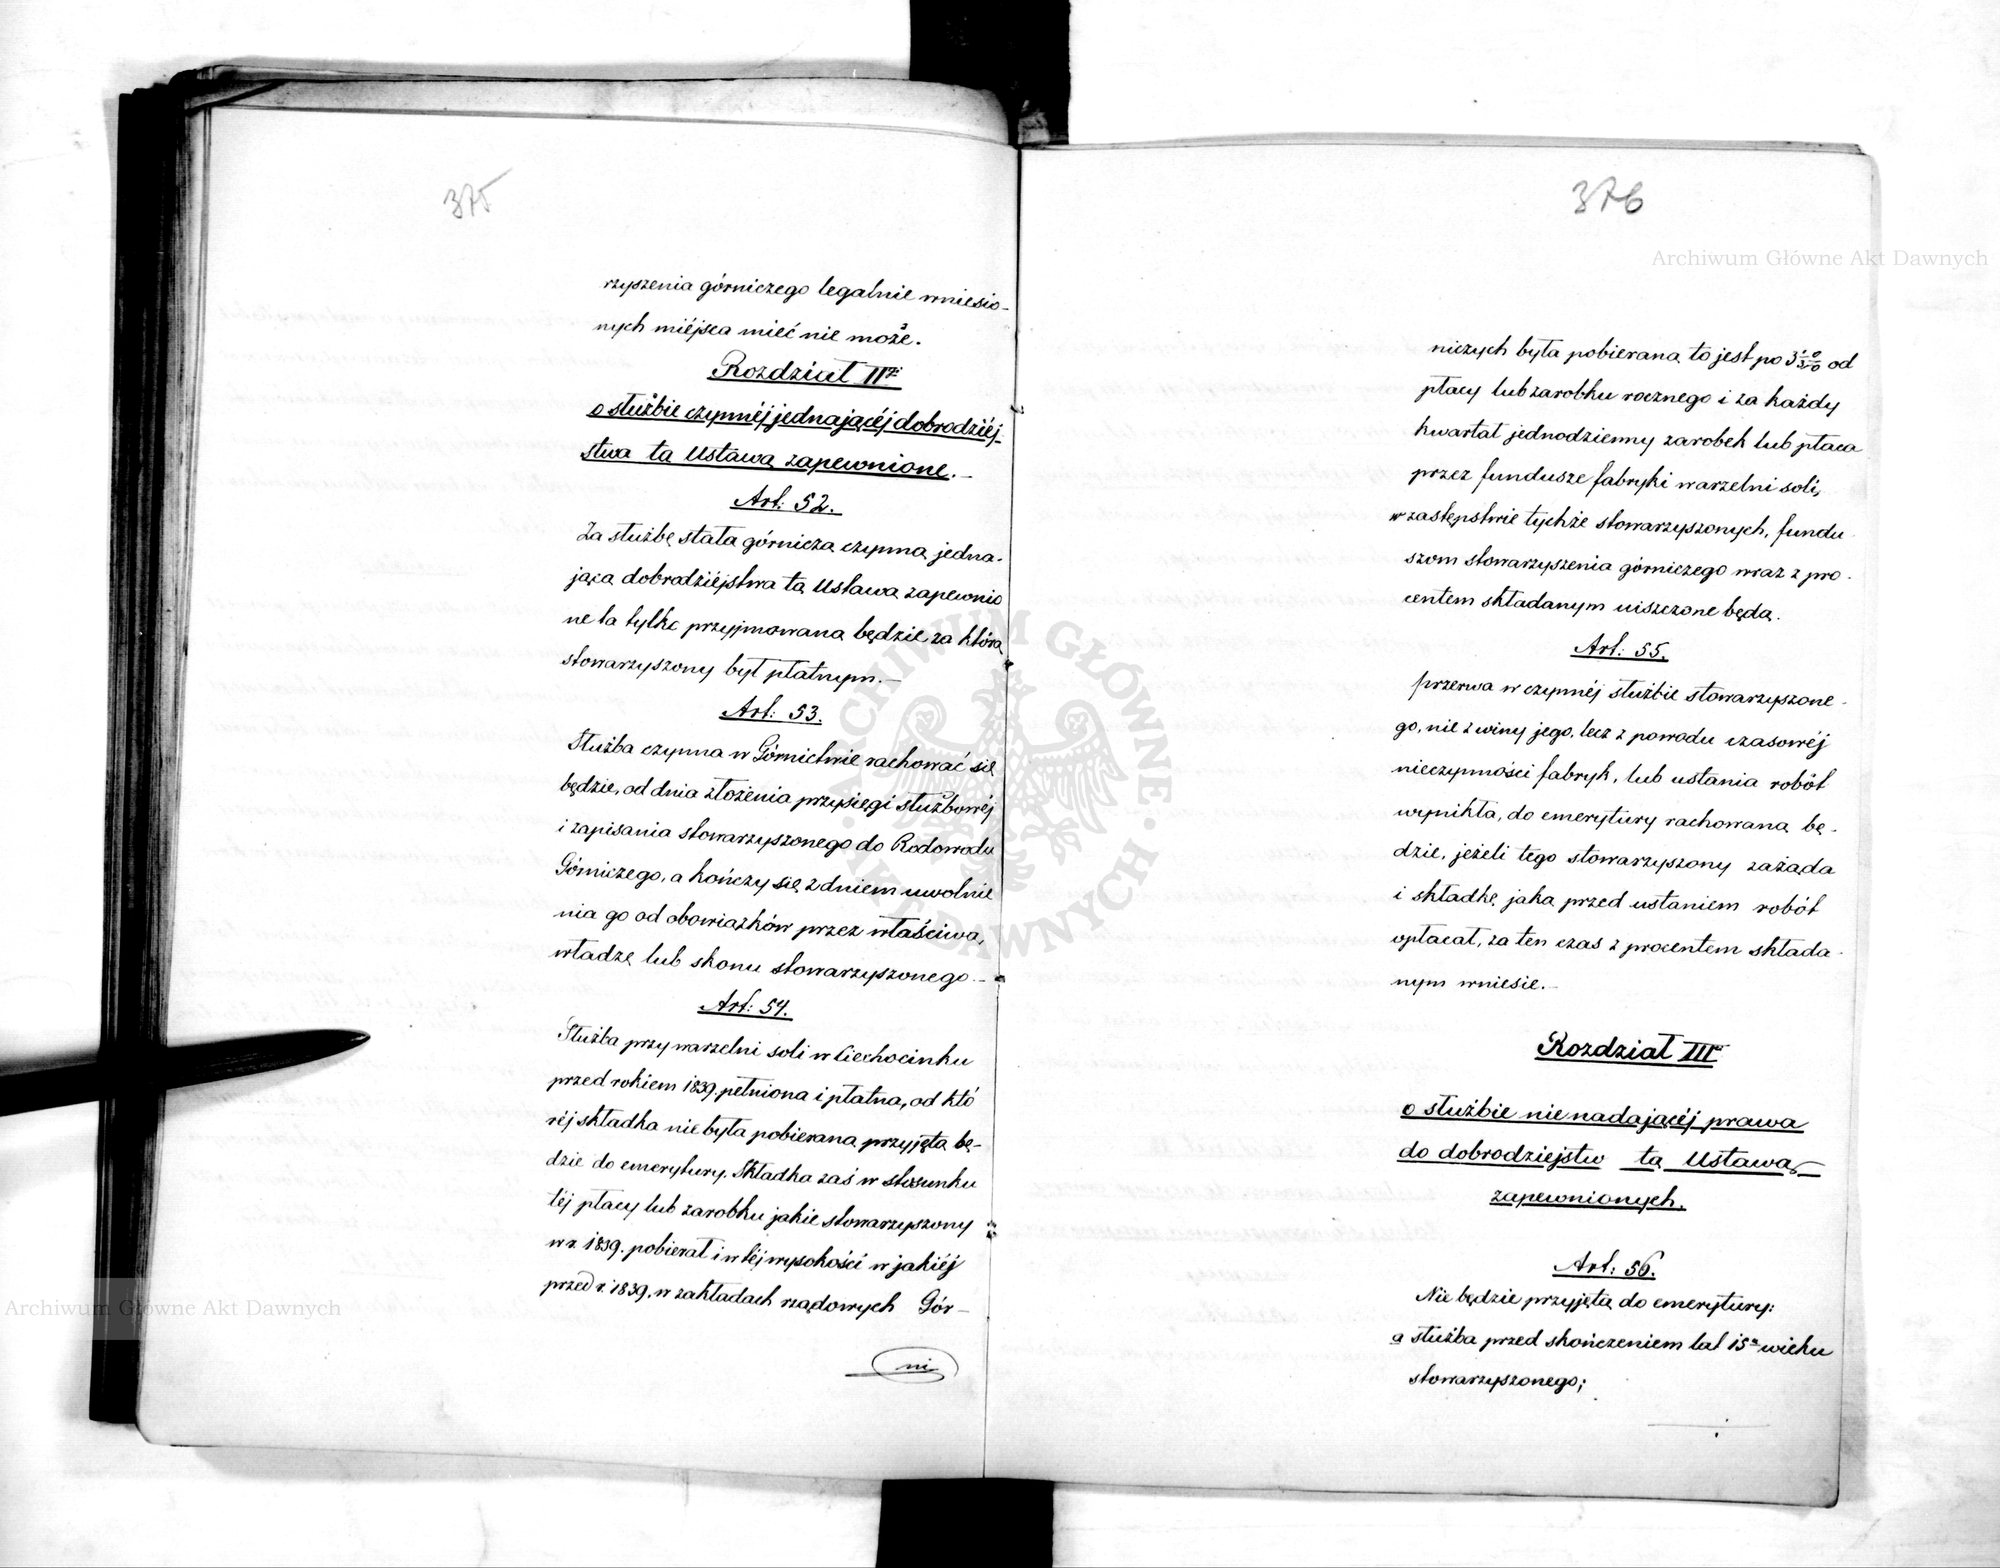 375
rzyszenia górniczego legalnie wniesio-
nych miéjsca mieć nie może.
Rozdział IIgi
o służbie czynnéj jednającéj dobrodziéj-
stwa tą Ustawą zapewnione.-
Art: 52.
Za służbę stałą górniczą czynną, jedna-
jącą dobrodziéjstwa tą Ustawą zapewnio
ne ta tylko przyjmowaną będzie za którą
stowarzyszony był płatnym.-
Art: 53.
Służba czynna w Górnictwie rachować się
będzie, od dnia złożenia przysięgi służbowéj
i zapisania stowarzyszonego do Rodowodu
Górniczego, a kończy się z dniem uwolnie
nia go od obowiązków przez właściwą,
władzę lub skonu stowarzyszonego.-
Art: 54.
Służba przy warzelni soli w Ciechocinku
przed rokiem 1839. pełniona i płatna, od któ
réj składka nie była pobieraną przyjętą bę-
dzie do emerytury. Składka zaś w stosunku
téj płacy lub zarobku jakie stowarzyszony
w r. 1839. pobierał i w téj wysokości w jakiéj
przed r. 1839. w zakładach rządowych Gór-
ni
376
niczych była pobieraną to jest po od
płacy lub zarobku rocznego i za każdy
kwartał jednodzienny zarobek lub płaca
przez fundusze fabryki warzelni soli,
w zastępstwie tychże stowarzyszonych, fundu
szom stowarzyszenia górniczego wraz z pro-
centem składanym uiszczone będą.
Art: 55.
przerwa w czynnéj służbie stowarzyszone-
go, nie z winy jego, lecz z powodu czasowéj
nieczynności fabryk, lub ustania robót
wynikła, do emerytury rachowaną bę-
dzie, jeżeli tego stowarzyszony zażąda
i składkę jaką przed ustaniem robót
opłacał, za ten czas z procentem składa-
nym wniesie.-
Rozdział III
o służbie nie nadającéj prawa
do dobrodziejstw tą Ustawą
zapewnionych.
Art: 56.
Nie będzie przyjętą do emerytury:
a służba przed skończeniem lat 15u wieku
stowarzyszonego;
Archiwum Główne Akt Dawnych
Archiwum Główne Akt Dawnych
ARCHIWUM GŁÓWNE AKT DAWNYCH